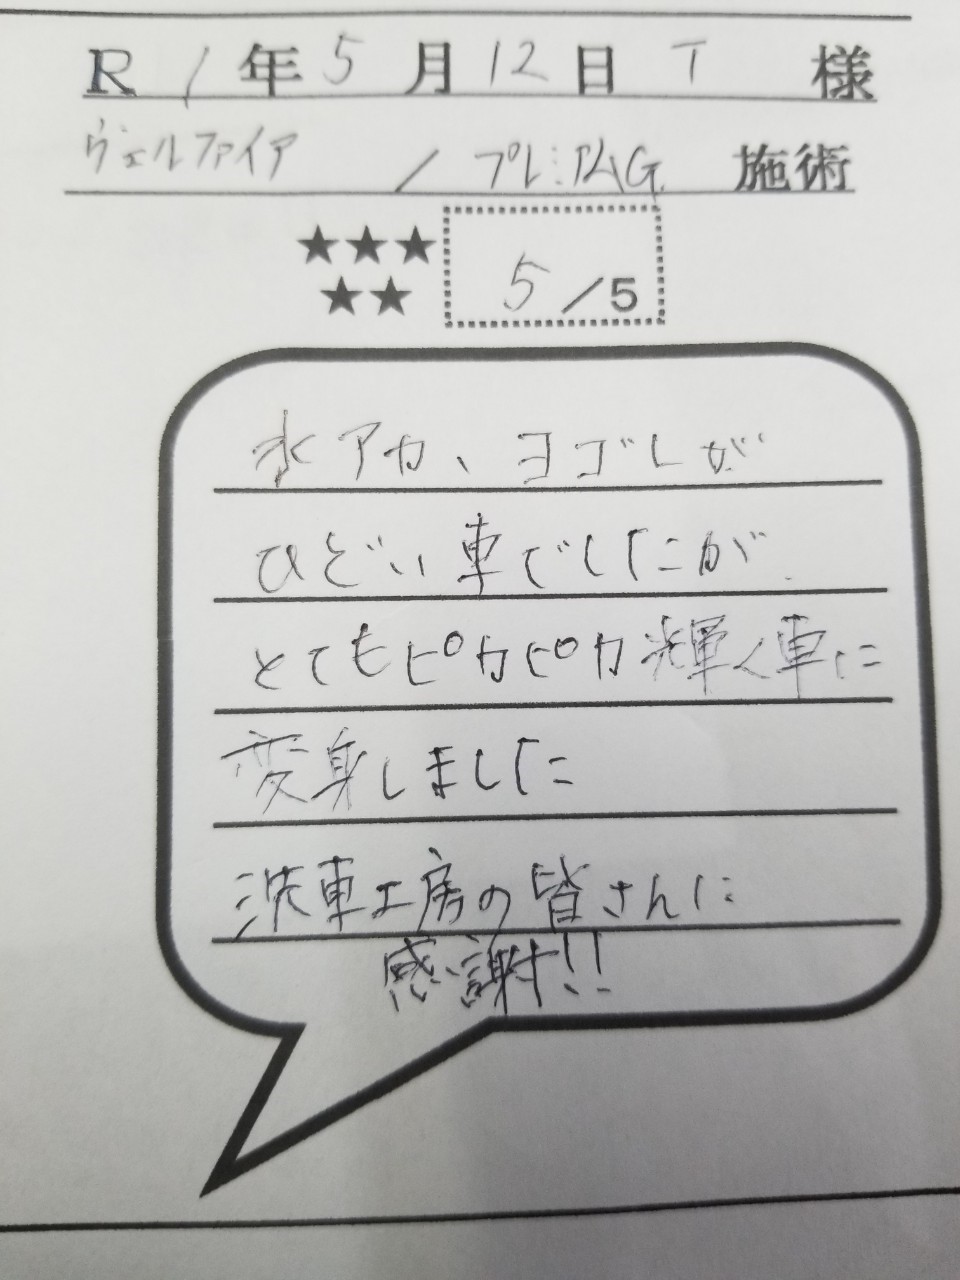 R1年5月12日 T 様
ヴェルファイア / プレミアムG 施術
★★★
★★
5/5
水アカ、ヨゴレが
ひどい車でしたが
とてもピカピカ輝く車に
変身しました
洗車工房の皆さんに
感謝!!